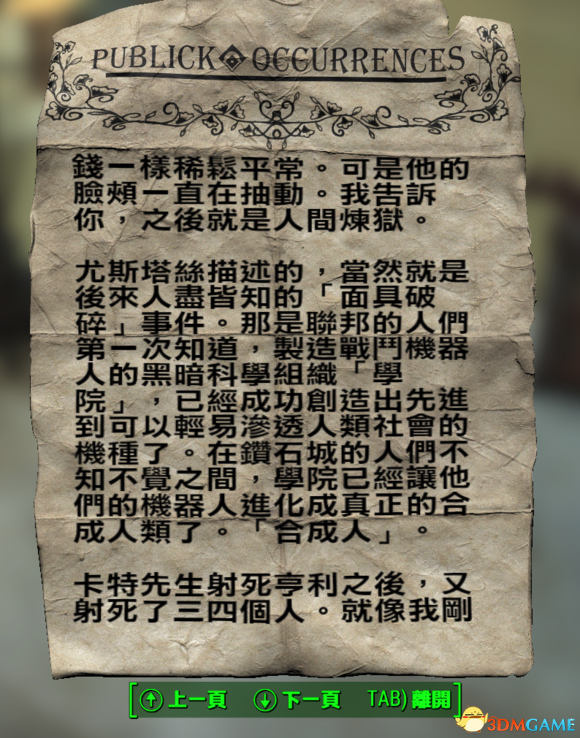 PUBLICK OCCURRENCES
錢一樣稀鬆平常。可是他的
臉頰一直在抽動。我告訴
你，之後就是人間煉獄。
尤斯塔絲描述的，當然就是
後來人盡皆知的「面具破
碎」事件。那是聯邦的人們
第一次知道，製造戰鬥機器
人的黑暗科學組織「學
院」，已經成功創造出先進
到可以輕易滲透人類社會的
機種了。在鑽石城的人們不
知不覺之間，學院已經讓他
們的機器人進化成真正的合
成人類了。「合成人」。
卡特先生射死亨利之後，又
射死了三四個人。就像我剛
上一頁 下一頁 TAB)離開
3DMGAME